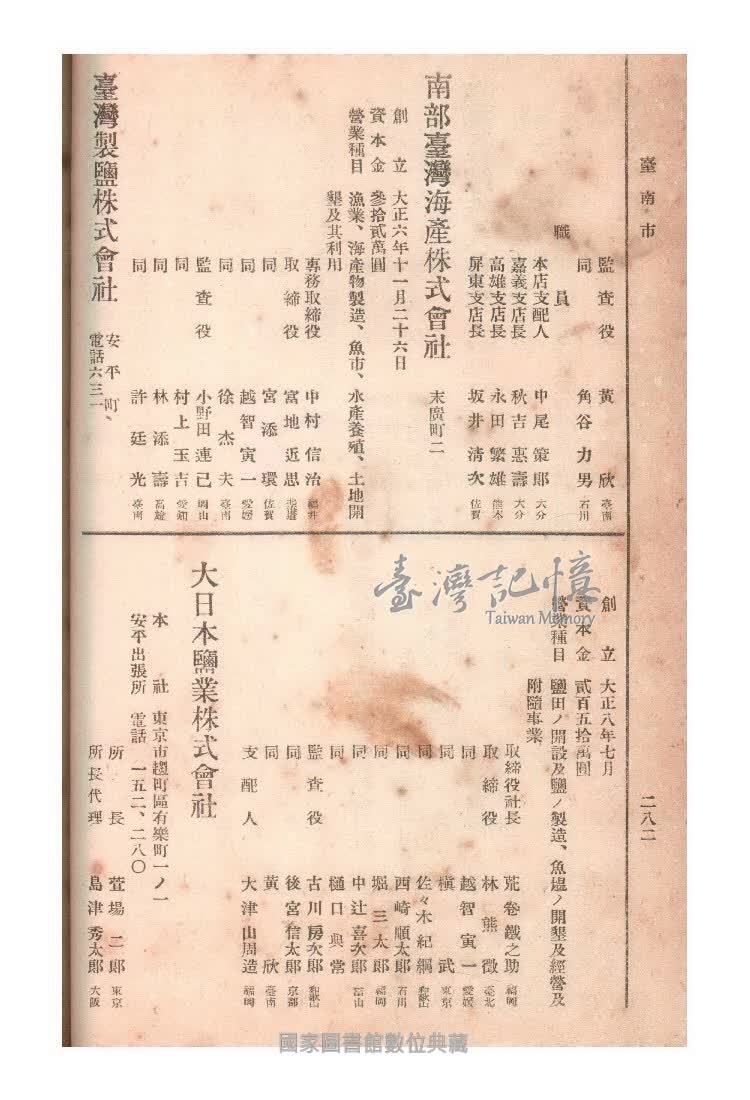 臺南市
二八二
監査役 黃欣 臺南
同 角谷力男 石川
職員
本店支配人 中尾策郎 大分
嘉義支店長 秋吉惠壽 大分
高雄支店長 永田繁雄 熊本
屏東支店長 坂井清次 佐賀
南部臺灣海產株式會社 末廣町二
創立 大正六年十一月二十六日
資本金 參拾貳萬圓
營業種目 漁業、海產物製造、魚市、水產養殖、土地開
墾及其利用
專務取締役 中村信治 福井
取締役 宮地近思
同 宮添環 佐賀
同 越智寅一 愛媛
同 徐杰夫 臺南
監査役 小野田連己 岡山
同 村上玉吉 愛知
同 林添壽 高雄
同 許廷光 臺南
臺灣製鹽株式會社 安平町、
電話六三一
創立 大正八年七月
資本金 貳百五拾萬圓
營業種目 鹽田ノ開設及鹽ノ製造、魚塭ノ開墾及經營及
附隨事業
取締役社長 荒卷鐵之助 福岡
取締役 林熊徵 臺北
同 越智寅一 愛媛
同 槇武 東京
同 佐々木紀綱 和歌山
同 西崎順太郎 石川
同 堀三太郎 福岡
同 中辻喜次郎 富山
同 樋口典常 福岡
監査役 古川房次郎 和歌山
同 後宮信太郎 京都
同 黃欣 臺南
支配人 大津山周造 福岡
大日本鹽業株式會社
本社 東京市麴町區有樂町一ノ一
安平出張所 電話 一五二、二八〇
所長 萱場二郎 東京
所長代理 島津秀太郎 大阪
臺灣記憶
Taiwan Memory
國家圖書館數位典藏